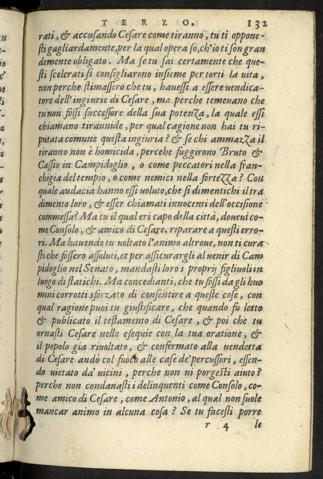 TERZO. 132
rati, & accusando Cesare come tiranno, tu ti oppone-
sti gagliardamente, per la qual opera so, ch'io ti son gran
demente obligato. Ma se tu sai certamente che que-
sti scelerati si consigliarono insieme per torti la uita,
non perche stimassero che tu, hauessi a essere uendica-
tore dell'ingiurie di Cesare, ma perche temeuano che
tu non fossi successore della sua potenza, la quale essi
chiamano tirannide, per qual cagione non hai tu ri-
putata comune questa ingiuria? & se chi ammazza il
tiranno non è homicida, perche fuggirono Bruto &
Cassio in Campidoglio, o come peccatori nella fran-
chigia del tempio, o come nemici nella fortezza? Con
quale audacia hanno essi uoluto, che si dimentichi il tra
dimento loro, & esser chiamati innocenti dell'occisione
commessa? Ma tu il qual eri capo della città, doueui co-
me Consolo, & amico di Cesare, riparare a questi erro-
ri. Ma hauendo tu uoltato l'animo altroue, non ti cura
sti che fossero assoluti, et per assicurargli al uenir di Cam
pidoglio nel Senato, mandasti loro i proprij figliuoli in
luogo di statichi. Ma concedianti, che tu fossi da gli huo
mini corrotti sforzato di consentire a queste cose, con
qual ragione puoi tu giustificare, che quando fu letto
& publicato il testamento di Cesare, & poi che tu
ornasti Cesare nelle esequie con la tua oratione, &
il popolo gia riuoltato, & confirmato alla uendetta
di Cesare andò col fuoco alle case de' percussori, essen-
do uietato da' uicini, perche non ui porgesti aiuto?
perche non condanasti i delinquenti come Consolo, co-
me amico di Cesare, come Antonio, al qual non suole
mancar animo in alcuna cosa? Se tu facesti porre
r 4 le